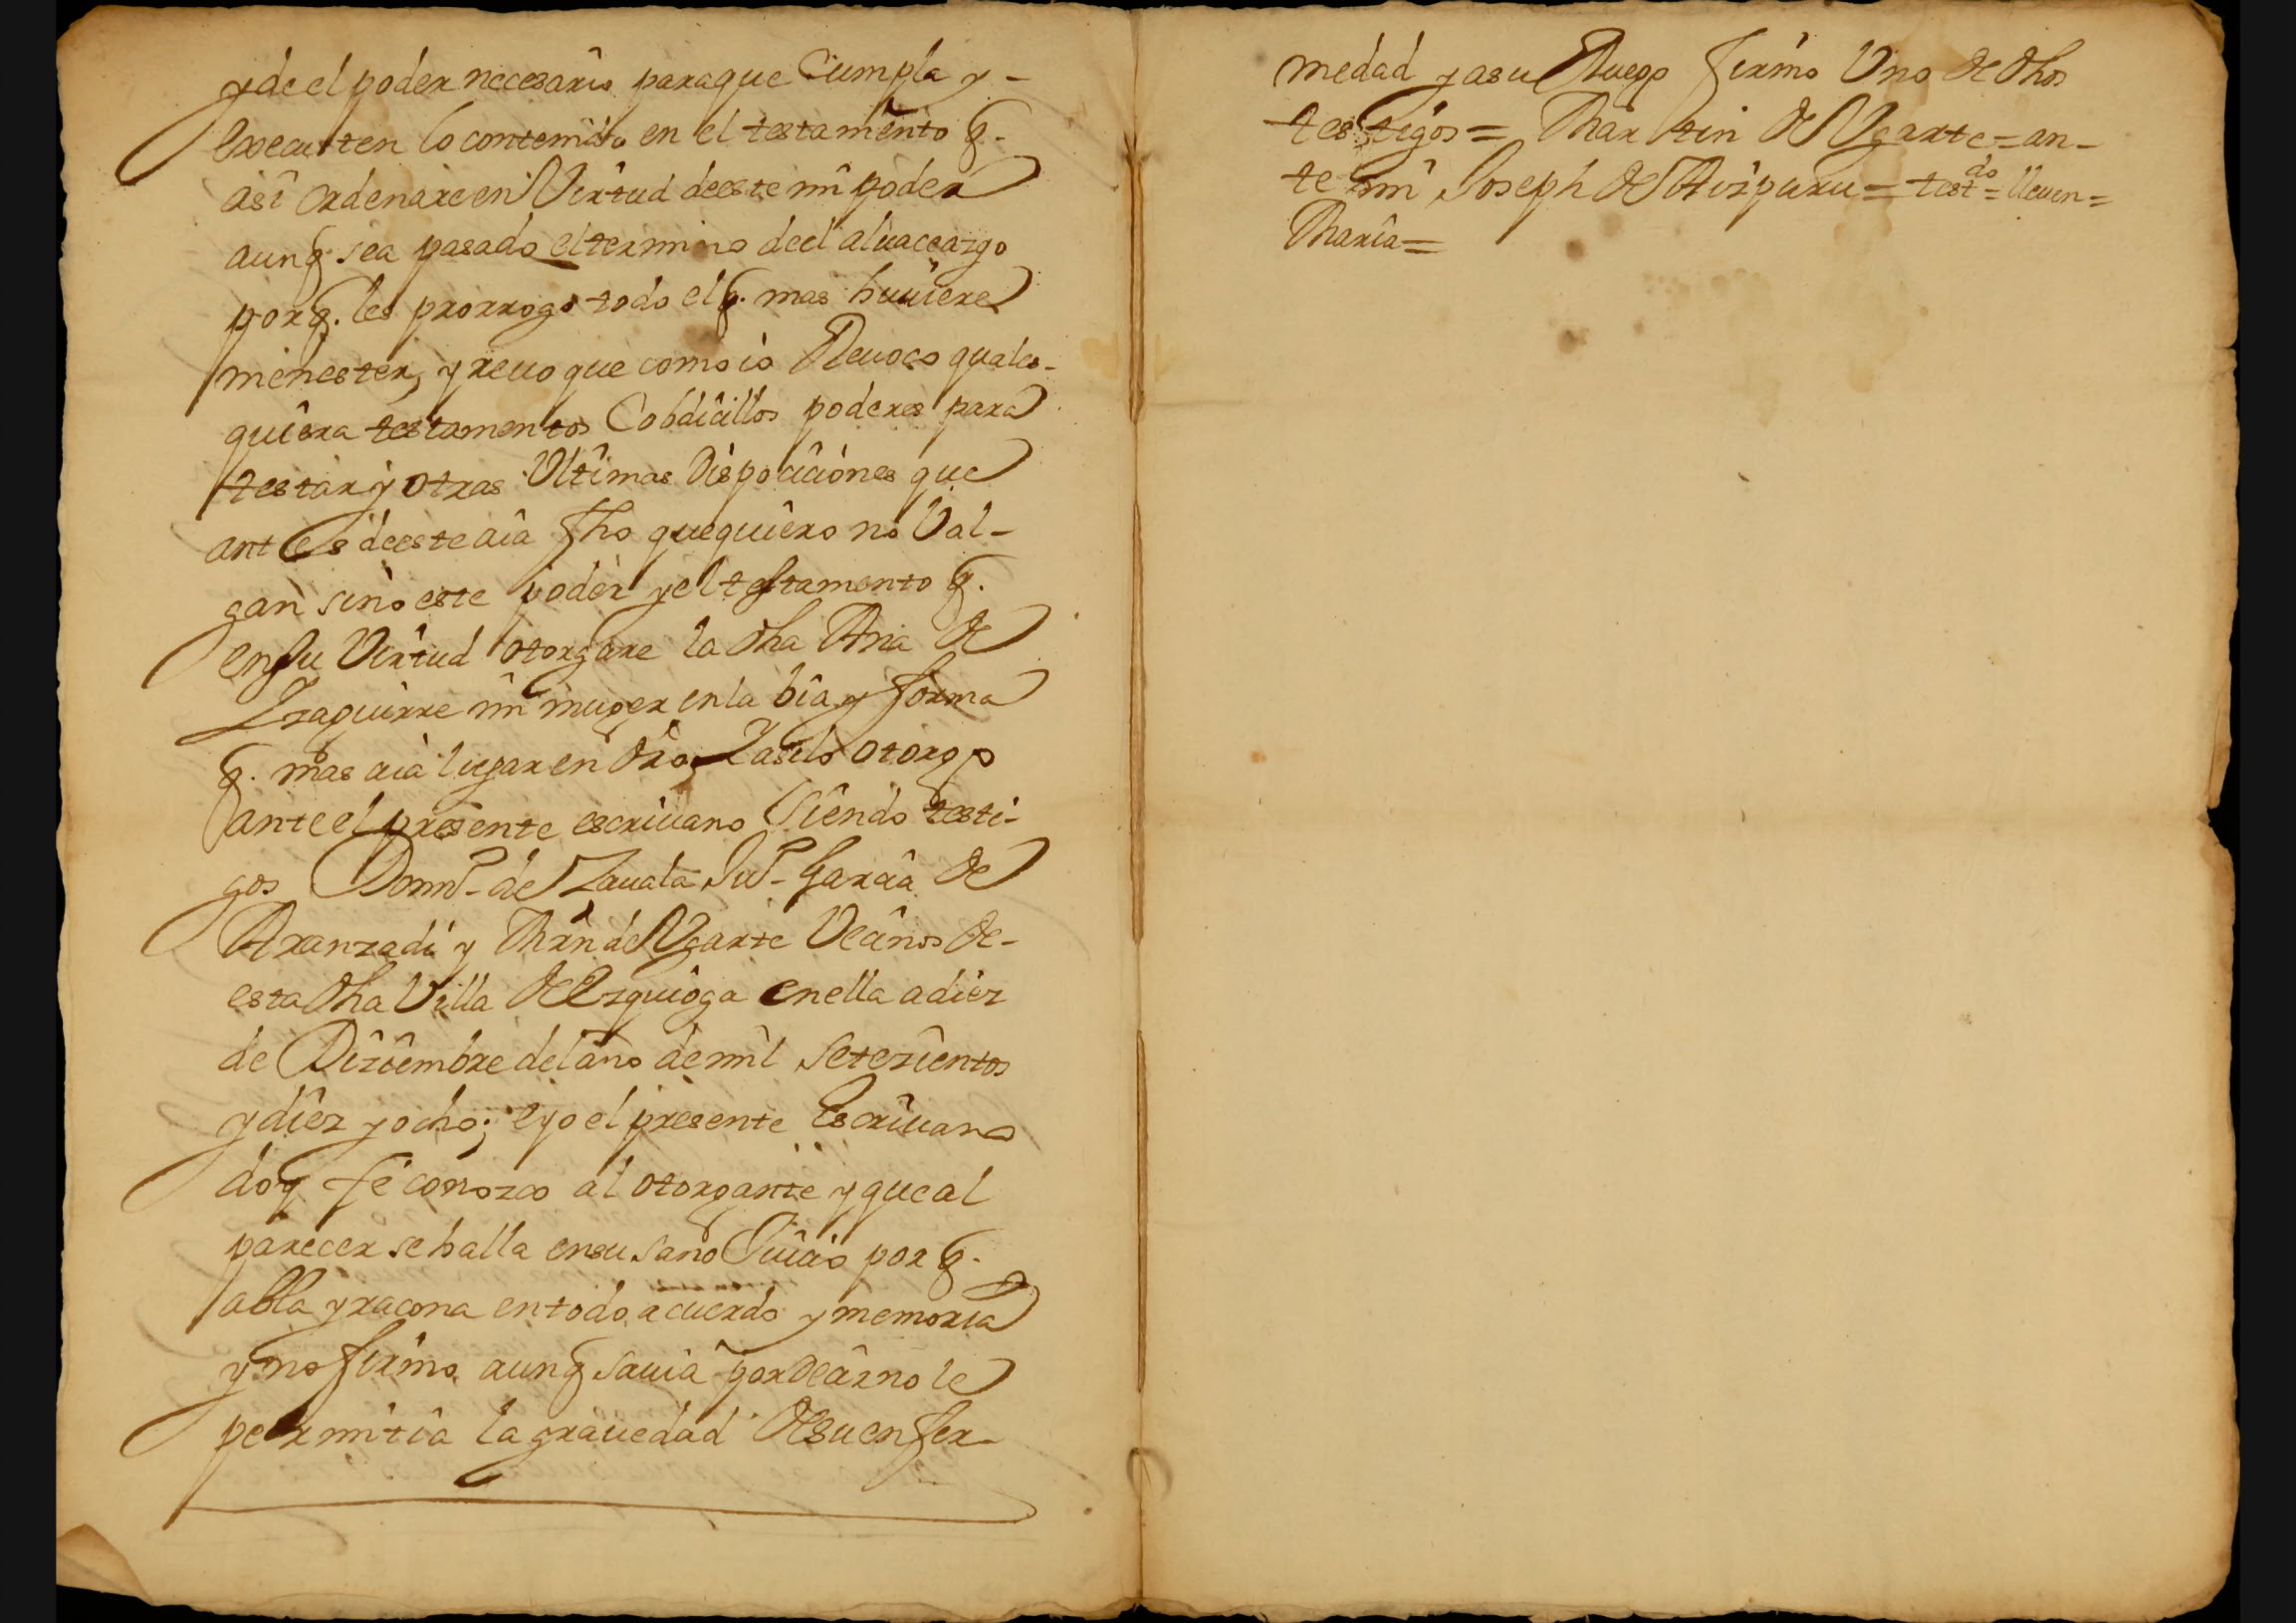 y de el poder necesario para que Cumpla y -
executen lo contenido en el testamento q.
asi ordenare en Virtud de este mi poder
aunq. sea pasado el termino de el aluaceazgo
porq. les prorrogo todo el q. mas huuiere
menester, y reuoque como io Reuoco quales-
quiera testamentos Cobdicillos poderes para
testar y otras Ultimas Dispociciones que
antes de este aia fho que quiero no Val-
gan sino este poder y el testamento q.
en su Virtud otorgare la dha Ana de
Yzaguirre mi muger en la bia y forma
q. mas aia lugar en dro, Y asi lo otorgo
ante el presente escriuano Siendo testi-
gos Domo. de Zauala Juo. Garcia de
Aranzadi y Mrn de Ugarte Vecinos de -
esta dha Villa de Ezquioga en ella a diez
de Diziembre del año de mil setezientos
y diez y ocho; e yo el presente escriuano
doy fe conozco al otorgante y que al
parecer se halla en su sano Juicio por q.
abla y racona en todo acuerdo y memoria
y no firmo aunq sauia por decir no le
permitia la grauedad de su enfer-
medad y a su Ruego firmo Uno de dhos
testigos = Martin de Ugarte = an-
te mi Joseph de Aizpuru = testdo = lleuen =
Maria =